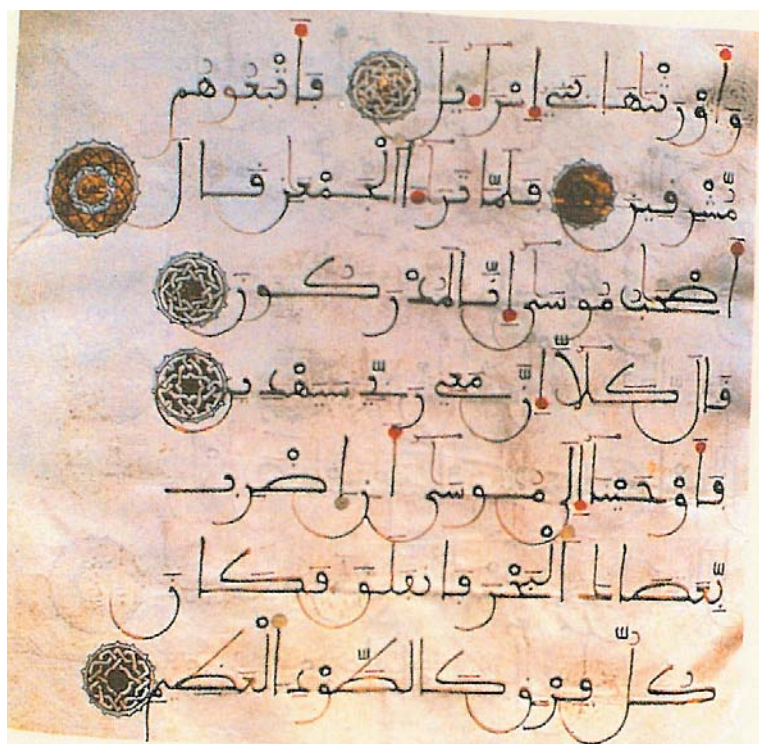 وَأَوْرَثْنَٰهَا بَنِىٓ إِسْرَآءِيلَ فَأَتْبَعُوهُم
مُّشْرِفِينَ فَلَمَّا تَرَٰٓءَا اَ۬لْجَمْعَٰنِ قَالَ
أَصْحَٰبُ مُوسَىٰٓ إِنَّا لَمُدْرَكُونَ
قَالَ كَلَّآ إِنَّ مَعِى رَبِّى سَيَهْدِينِ
فَأَوْحَيْنَآ إِلَىٰ مُوسَىٰٓ أَنِ اِ۪ضْرِب
بِّعَصَاكَ اَ۬لْبَحْرَ فَانفَلَقَ فَكَانَ
كُلُّ فِرْقٍ كَالطَّوْدِ اِ۬لْعَظِيمِ